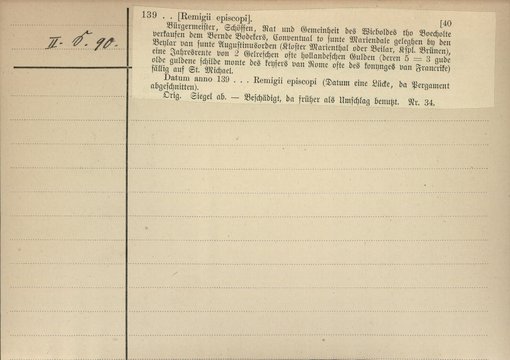 139 . . [Remigii episcopi]. [40
Bürgermeister, Schöffen, Rat und Gemeinheit des Wicboldes tho Bocholte
verkaufen dem Bernde Bodekers, Conventual to sunte Mariendale geleghen by den
Beylar van sunte Augustinusorden (Kloster Marienthal oder Beilar, Kspl. Brünen),
eine Jahresrente von 2 Gelreschen ofte hollandeschen Gulden (deren 5 = 3 gude
olde guldene schilde monte des keysers van Rome ofte des konynges van Francrike)
fällig auf St. Michael.
Datum anno 139 . . . Remigii episcopi (Datum eine Lücke, da Pergament
abgeschnitten).
Orig. Siegel ab. — Beschädigt, da früher als Umschlag benutzt. Nr. 34.
II. 90.